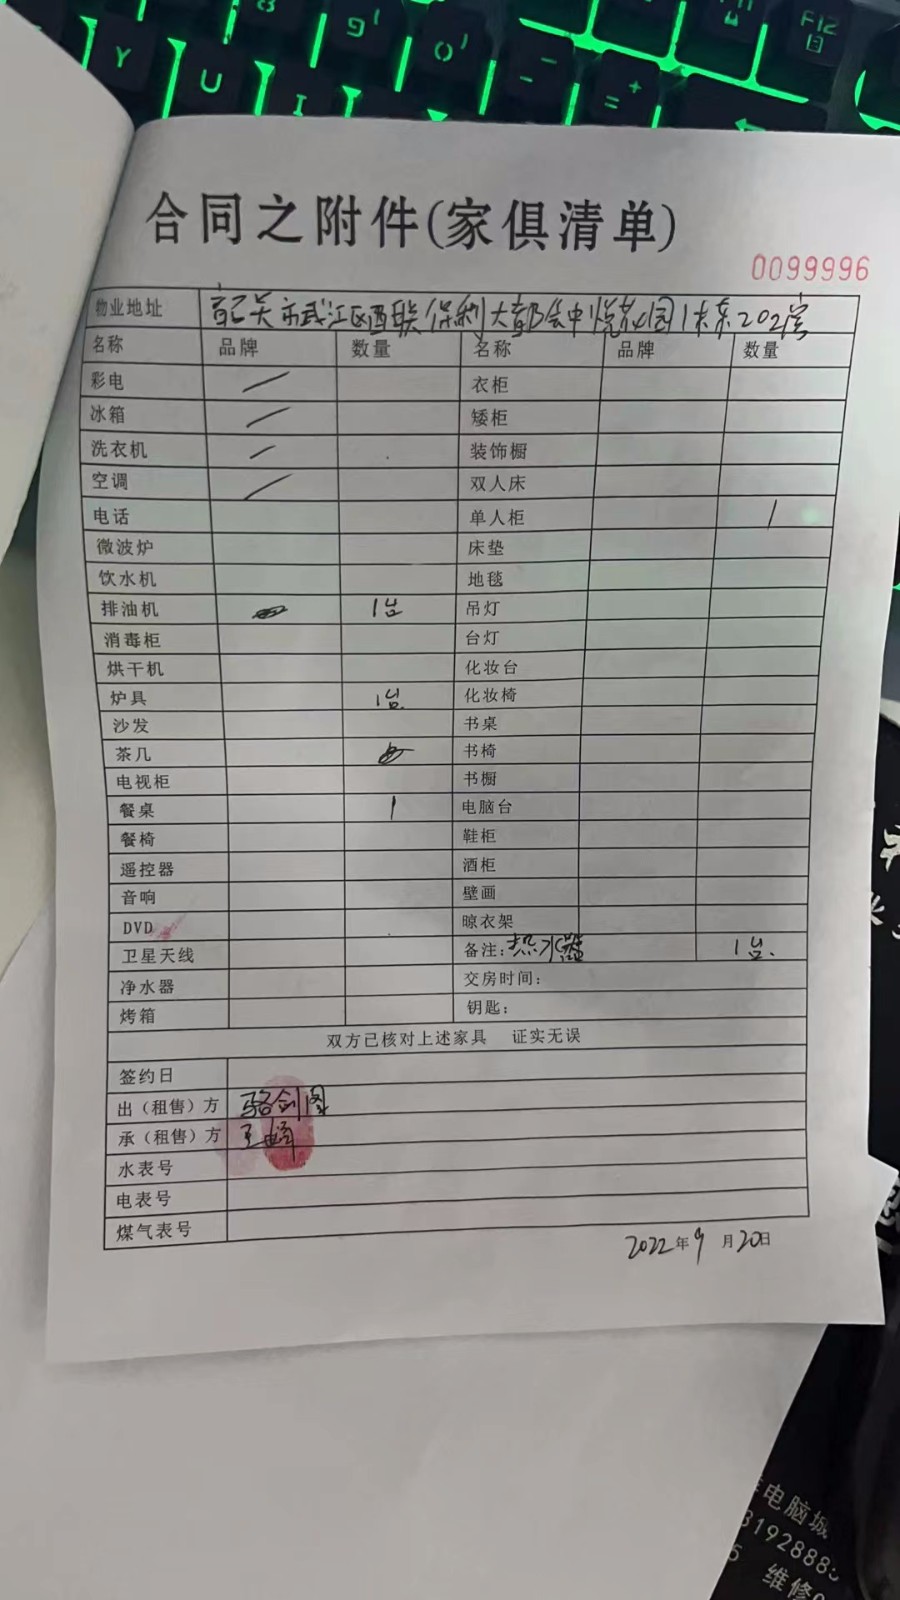 Y
U
I
8
9
0
F12
合同之附件(家俱清单)
0099996
物业地址 韶关市武江区西联保利大都会中悦花园1栋东202房
名称 品牌 数量 名称 品牌 数量
彩电 衣柜
冰箱 矮柜
洗衣机 装饰橱
空调 双人床
电话 单人柜 1
微波炉 床垫
饮水机 地毯
排油机 1台 吊灯
消毒柜 台灯
烘干机 化妆台
炉具 1台. 化妆椅
沙发 书桌
茶几 书椅
电视柜 书橱
餐桌 1 电脑台
餐椅 鞋柜
遥控器 酒柜
音响 壁画
DVD 晾衣架
卫星天线 备注:热水器 1台.
净水器 交房时间:
烤箱 钥匙:
双方已核对上述家具 证实无误
签约日
出(租售)方 骆剑
承(租售)方 王峰
水表号
电表号
煤气表号
2022年9月20日
电脑城
319288
维修